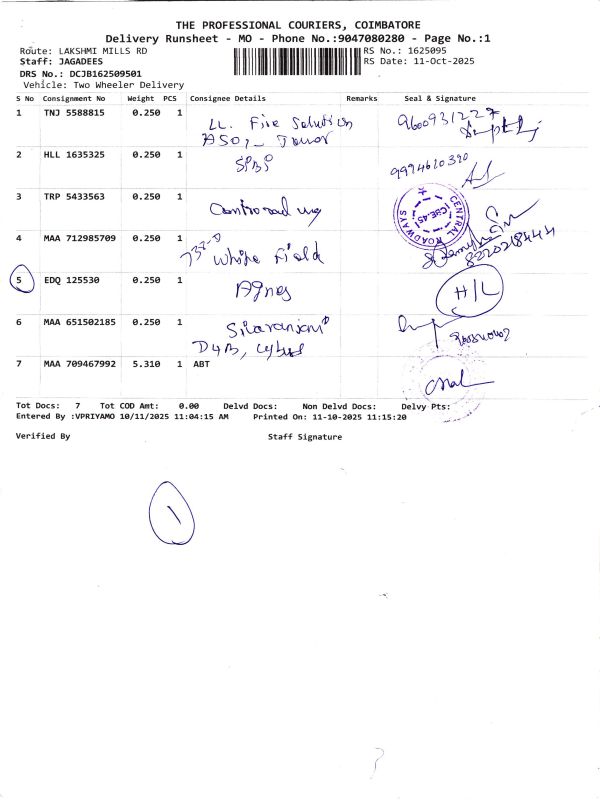 THE PROFESSIONAL COURIERS, COIMBATORE
Delivery Runsheet - MO - Phone No.:9047080280 - Page No.:1
Route: LAKSHMI MILLS RD RS No.: 1625095
Staff: JAGADEES RS Date: 11-Oct-2025
DRS No.: DCJB162509501
Vehicle: Two Wheeler Delivery
S No Consignment No Weight PCS Consignee Details Remarks Seal & Signature
1 TNJ 5588815 0.250 1 LL. Fire Solution 9600931227
2 HLL 1635325 0.250 1 9994610390
3 TRP 5433563 0.250 1
CENTRAL ROADWAYS
4 MAA 712985709 0.250 1 White Field 8220218444
5 EDQ 125530 0.250 1 Agnes H/L
6 MAA 651502185 0.250 1
7 MAA 709467992 5.310 1 ABT
Tot Docs: 7 Tot COD Amt: 0.00 Delvd Docs: Non Delvd Docs: Delvy Pts:
Entered By :VPRIYAMO 10/11/2025 11:04:15 AM Printed On: 11-10-2025 11:15:20
Verified By Staff Signature
1